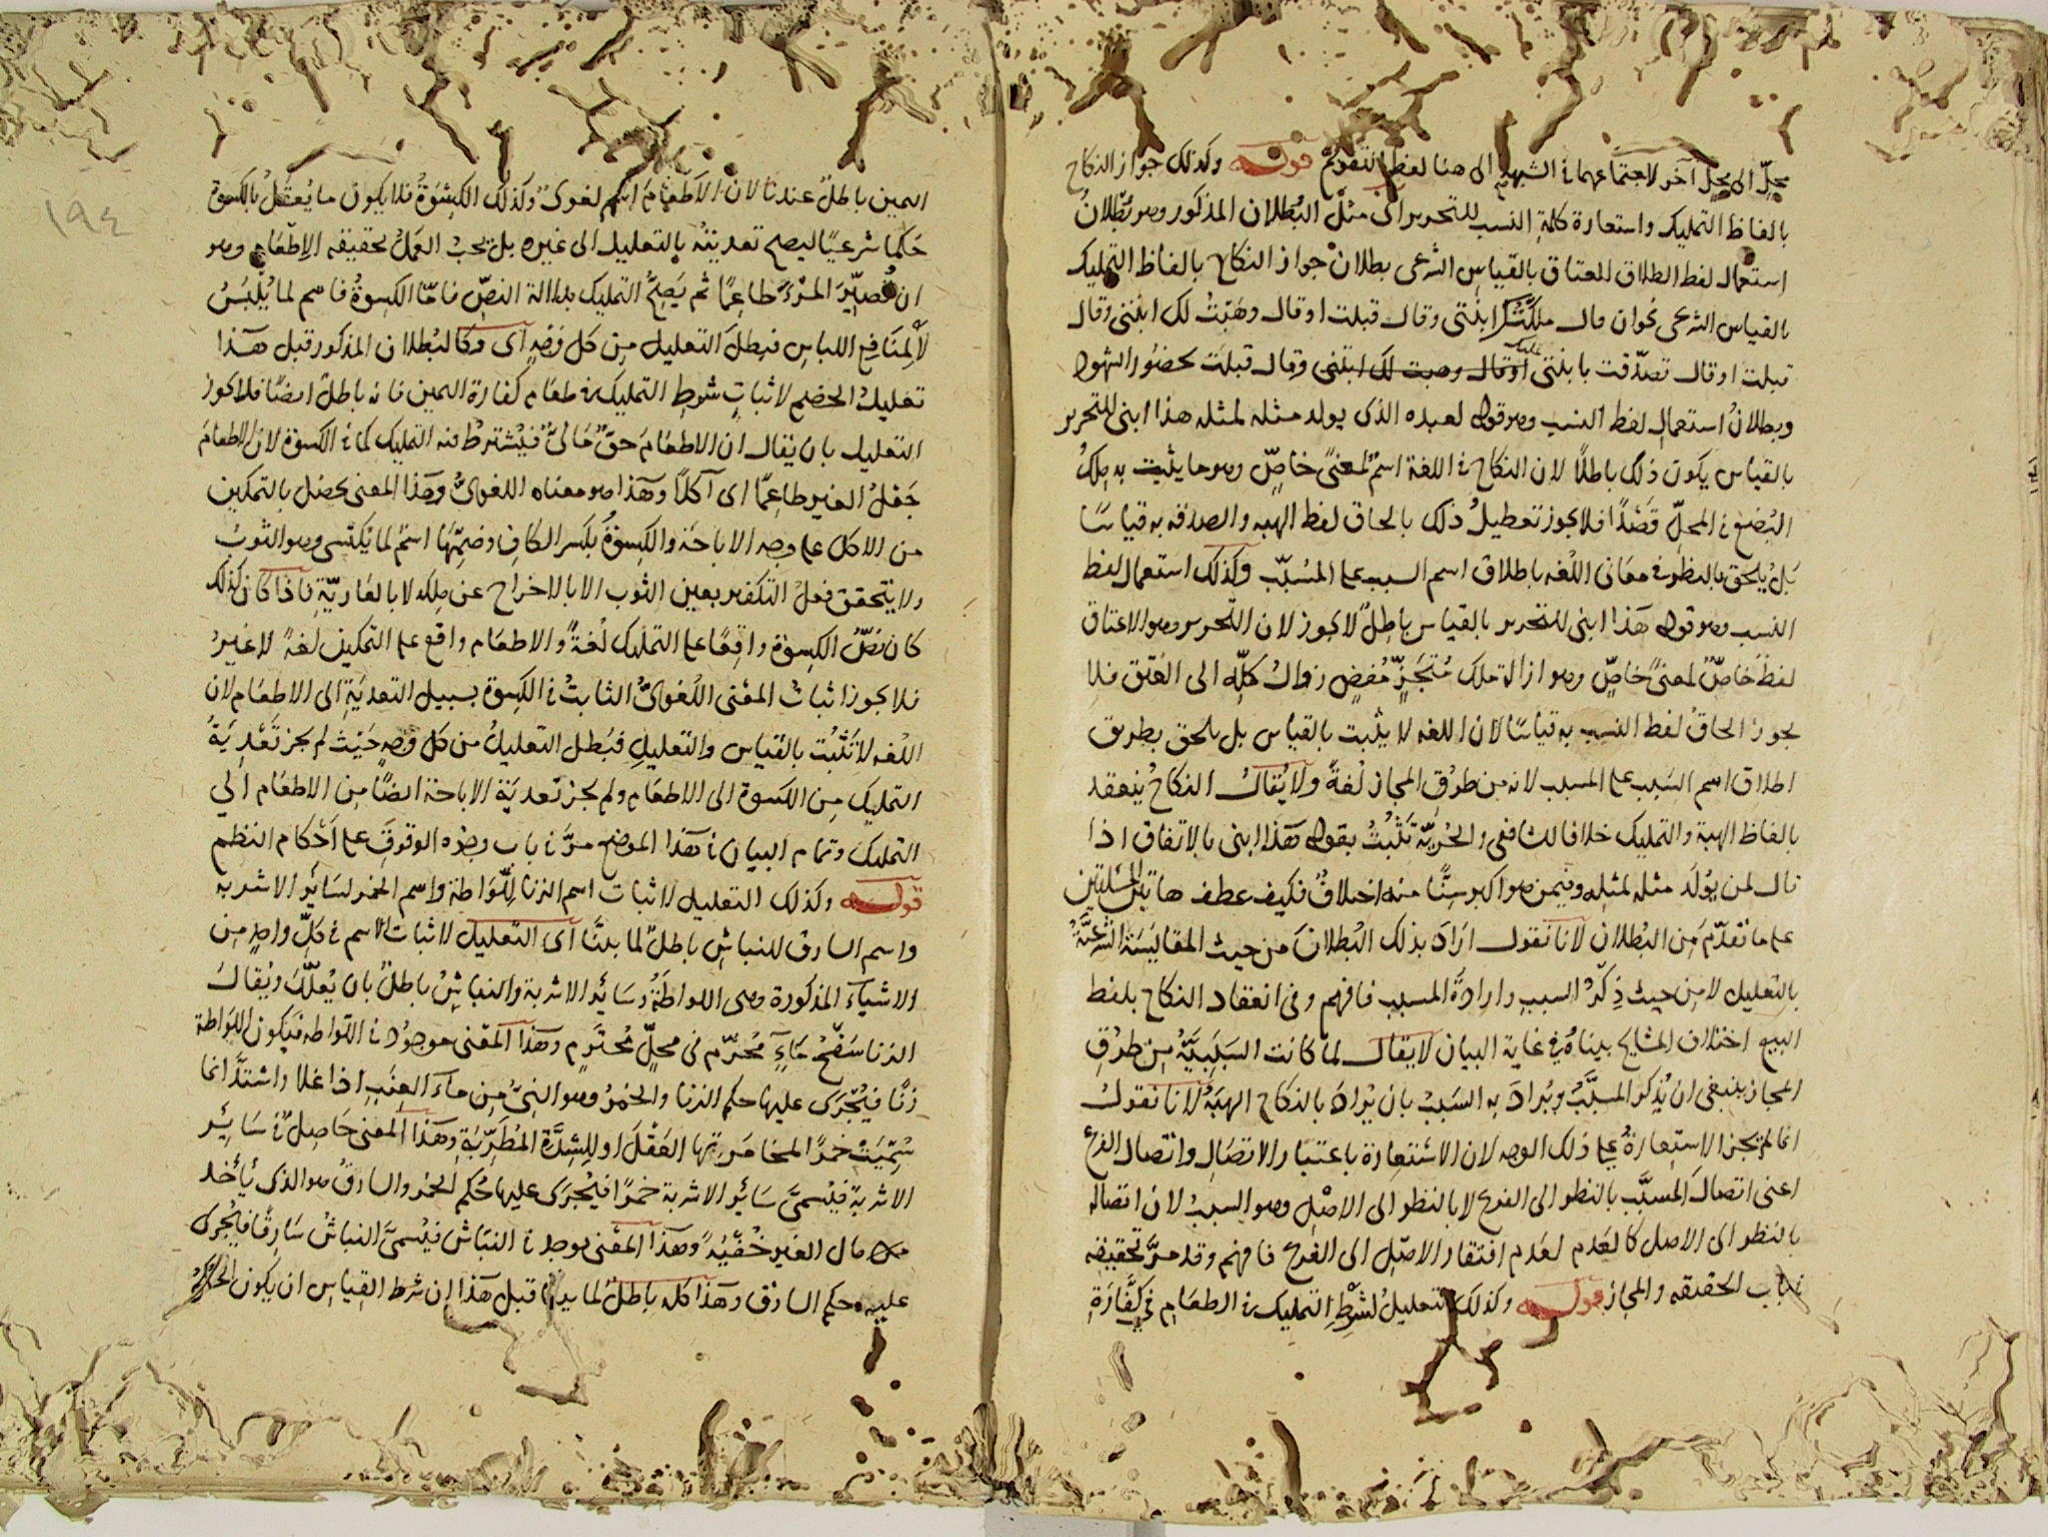 محل الى محل آخر لاجتماعهما في الشبهة الى هنا لفظ التقويم قوله وكذلك جواز النكاح
بالفاظ التمليك واستعارة كلمة النسب للتحرير اى مثل البُطلان المذكور وهو بُطلانُ
استعمال لفظ الطلاق للعتاق بالقياس الشرعى بطلان جواز النكاح بالفاظ التمليك
بالقياس الشرعى نحو ان قال ملكتُكَ ابنتى وقال قبلت او قال وهَبتُ لك ابنتى وقال
قبلت او قال تصدّقت بابنتى عليك وقال قبلت بحضور الشهود
وبطلانُ استعمالِ لفظ النسب وهو قوله لعبده الذى يولد مثله لمثله هذا ابنى للتحرير
بالقياس يكون ذلك باطلًا لان النكاح في اللغة اسمٌ لمعنىً خاصٍّ وهو ما يثبت به مِلكُ
البُضع في المحلّ قَصْدًا فلا يجوز تعطيلُ ذلك بالحاق لفظ الهبه والصدقه به قياسًا
بَلْ يلحق بالنظر في معانى اللغه باطلاق اسم السبب على المسَبَّب وكذلك استعمال لفظ
النسب وهو قوله هذا ابنى للتحرير بالقياس باطِلٌ لا يجوز لان التحرير وهو الاعتاق
لفظٌ خاصٌّ لمعنىً خاصٍّ وهو ازالة ملك مُتَجَزٍّ مُفضٍ زواله كلِّه الى العتق فلا
يجوز الحاقُ لفظ النسب به قياسًا لان اللغه لا يثبت بالقياس بل يلحق بطريق
اطلاق اسم السَبب على المسبب لانه من طُرقِ المجاز لُغةً ولا يُقالُ النكاحُ ينعقد
بالفاظ الهبة والتمليك خلافا للشافعى والحُرّيّة تَثْبُتُ بقوله هَذا ابنى بالاتفاق اذا
قال لمن يُولَد مثله لمثله وفيمن هو اكبر سِنًّا منه اختلافٌ فكيف عطف هاتين المسئلتين
على ما تقدّمَ من البُطلان لانا نقول ارادَ بذلك البُطلانَ من حيث المقايَسَة الشرعيّة
بالتعليل لا من حيث ذِكرُ السبب وارادةُ المسبب فافهم وفى انعقاد النكاح بلفظ
البيع اختلاف المشايخ بيناه في غاية البيان لا يقال لما كانت السَبَبِيّةُ مِن طُرُقِ
المجاز ينبغى ان يُذكر المسبَّبُ ويُرادَ به السَبَبُ بان يُرادَ بالنكاح الهبَةُ لانا نقولُ
انما لم تجز الاستعارةُ على ذلك الوجه لان الاستعارة باعتبار الاتصَالِ واتصال الفرع
اعنى اتصالَ المسبَّب بالنظر الى الفرع لا بالنظر الى الاصْلِ وهو السببُ لان اتصاله
بالنظر الى الاصل كالعَدم لعَدم افتقار الاصْلِ الى الفرع فافهم وقد مرّ تحقيقه
في باب الحقيقه والمجاز قوله وكذلك التعليلُ لشَرْطِ التمليك في الطعَام في كفّارة
اليمين باطلٌ عندنا لان الاطعَامَ اسم لغوىٌ وكذلك الكِسْوَةُ فلا يكون ما يُعقلُ بالكسوة
حُكمًا شرعيًّا ليصح تعديتُه بالتعليل الى غيره بل يجبُ العَمَلُ بحقيقه الاِطعَامِ وهو
ان يُصيِّرَ المَرْءَ طاعِمًا ثم يَصِحُّ التمليك بدلالة النصّ فامّا الكسوةُ فاسم لما يُلبَسُ
لا لِمنَافع اللباس فبطلَ التعليل من كل وَجْهٍ اى وكالبُطلان المذكور قبل هذا
تعليلُ الخصم لاثباتِ شرطِ التمليك في طعَام كفارة اليمين فانه باطلٌ ايضًا فلا يجوز
التعليل بان يقال ان الاطعَامَ حقٌّ مَالىٌّ فيُشترطُ فيه التمليك كما في الكسوة لان الاطعامَ
جَعْلُ الغير طاعِمًا اى آكلًا وهَذا هو معناه اللغوىُّ وهذا المعنى يحصُل بالتمكين
من الاكل على وجه الاباحَة والكِسوةُ بكسر الكافِ وضمّها اسمٌ لما يُكتسى وهو الثوبُ
ولا يتحقق فعلُ التكفير بعين الثوب الا بالاخراج عن ملكه لا بالعَاريّة فاذا كان كذلك
كان نصُّ الكِسوة واقِعًا على التمليك لُغةً والاطعَام واقع على التمكين لغةً لا غيرُ
فلا يجوز اثباتُ المعْنى اللُغوىُّ الثابتُ في الكسوة بسبيل التعديَةِ الى الاطعَام لان
اللغه لا تَثْبُت بالقياس والتعليلِ فبَطل التعليلُ من كل وَجْهٍ حَيْث لم يجز تَعْدِيَةُ
التمليكِ مِن الكسوة الى الاطعَام ولم يجز تعديَة الاباحة ايضًا من الاطعَام الى
التمليك وتمام البيان في هَذا الموضع مرَّ في باب وجُوه الوقوفِ على احْكام النظم
قوله وكذلك التعليل لاثبات اسم الزنا لِلّوَاطة واسم الخمر لسَائر الاشربه
واسم السارق للنباش باطلٌ لما بيَّنا اى التعليل لاثبات الاسم في كلّ واحدٍ من
الاشيآء المذكورة وهى اللواطَةُ وسَائر الاشربة والنباشُ باطلٌ بان يُعلّلَ ويُقالَ
الزنا سَفْحُ مَآءٍ مُحرَّم فى محلٍّ مُحتَرم وهَذا المعْنى موجودٌ في اللّواطه فيكون اللِواطة
زنًا فيُجْرى عليها حكم الزنا والخمرُ وهو النىُّ مِن مآءِ العِنَب اذا غلا واشتدَّ انما
سُمّيَتْ خمرًا لمخامَرتها العَقْلَ او للشِدَّة المُطرِبَةِ وهَذا المعنى حَاصِلٌ في سَائر
الاشربة فيُسمَّى سَائر الاشربة خمرًا فيُجرَى عليها حُكم الخمر والسارقُ هو الذى يأخذ
مال الغير خُفْيَةً وهَذا المعْنى يوجد في النبّاش فيُسمَّى النباشُ سَارِقًا فيُجْرى
عليه حكم السارق وهَذا كله باطلٌ لما بينا قبل هذا ان شرط القياس ان يكون الحكمُ
١٩٤